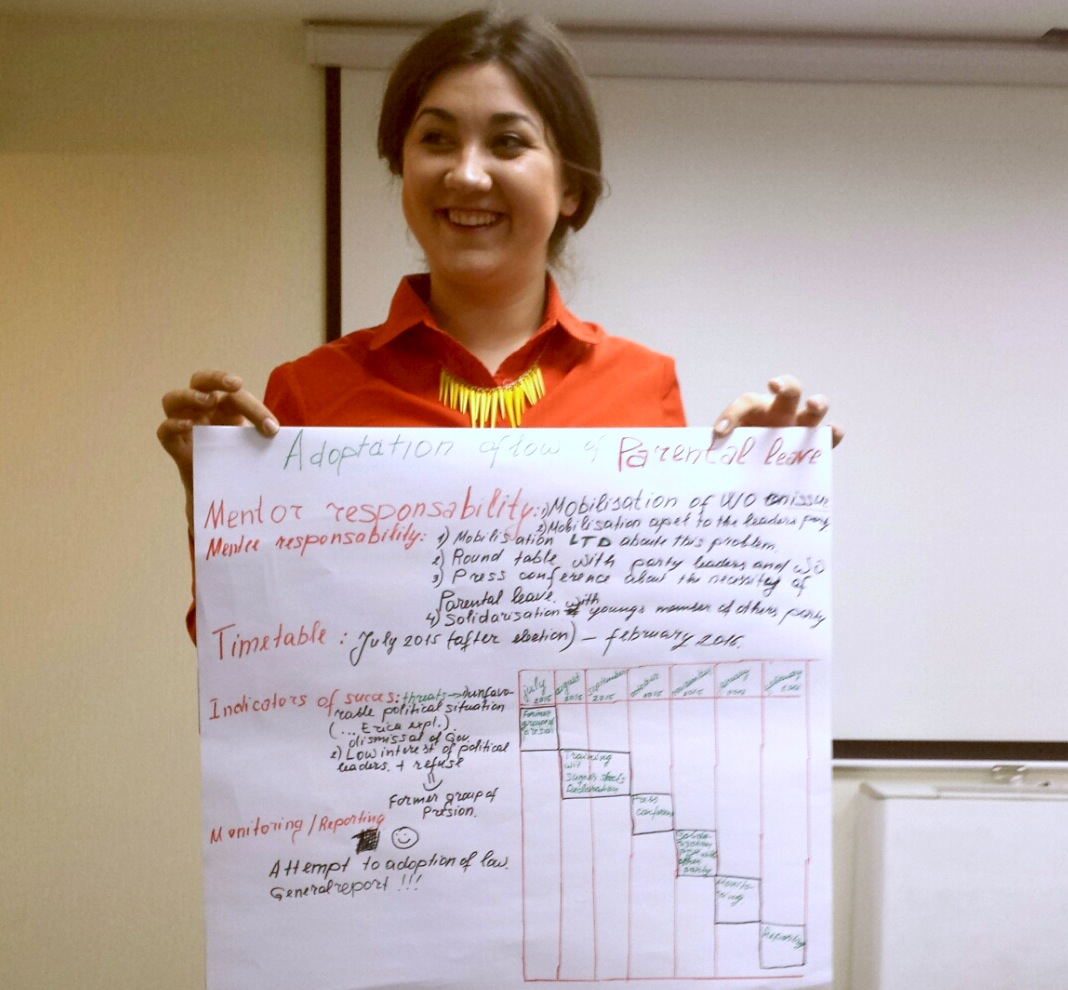 Adoptation of low of Parental leave
Mentor responsability: 1) Mobilisation of W/O on issue
2) Mobilisation apel to the leaders party
Mentee responsability: 1) Mobilisation LTD aboute this problem.
2) Round table with party leaders and WO
3) Press conference about the necessitay of
Parental leave.
4) Solidarisation with youngs member of others party
Timetable: July 2015 (after election) – february 2016.
Indicators of succes: threats → 1) unfavo-
rable political situation
(... Erica expl.)
dismissal of Gov.
2) Low interest of political
leaders. + refuse
Former group of
Presion.
Monitoring / Reporting
Attempt to adoption of law.
General report !!!
july 2015
august 2015
september 2015
october 2015
november 2015
january
february
Former group of presion
Training
Press conference
Monito-
ring
Reporting